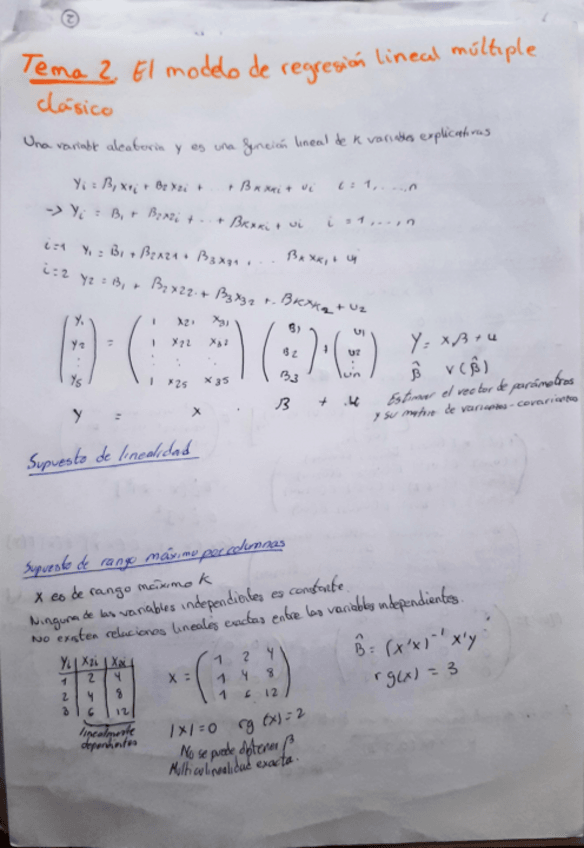 2
Tema 2. El modelo de regresión lineal múltiple
clásico
Una variable aleatoria y es una función lineal de k variables explicativas
Yi = B1 x1i + B2 x2i + . . + BK xKi + ui i = 1, ..., n
-> Yi = B1 + B2x2i + .. + BKxKi + ui i = 1, ..., n
i=1 Y1 = B1 + B2x21 + B3x31 , .. BKxK1 + u1
i=2 Y2 = B1 + B2x22 + B3x32 + .. BKxK2 + u2
(Y1 Y2 : Y5) = (1 x21 x31 1 x22 x32 : : : 1 x25 x35) (B1 B2 B3) + (u1 u2 : un)
Y = xB + u
B̂ V(B̂)
Estimar el vector de parámetros
y su matriz de varianzas-covarianzas
Y = x . B + u
Supuesto de linealidad
Supuesto de rango máximo por columnas
x es de rango máximo K
Ninguna de las variables independientes es constante.
No existen relaciones lineales exactas entre las variables independientes.
Yi | X2i | X3i
1 | 2 | 4
2 | 4 | 8
3 | 6 | 12
linealmente
dependientes
x = (1 2 4 1 4 8 1 6 12)
|x| = 0 rg (x) = 2
No se puede obtener β
Multicolinealidad exacta.
B̂ = (x'x)⁻¹ x'y
rg(x) = 3